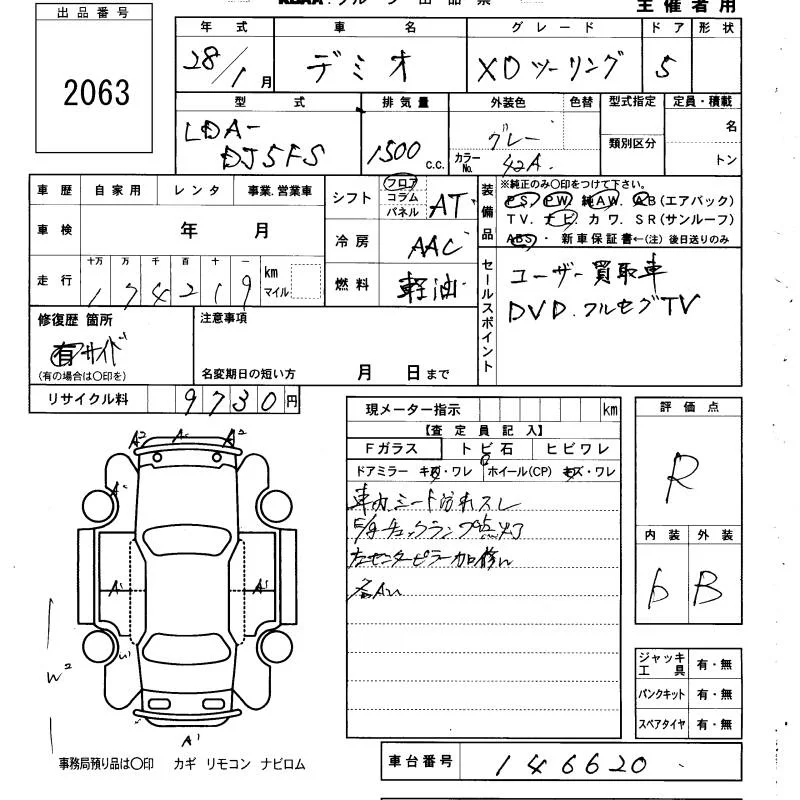 出品番号
2063
主催者用
年式 車名 グレード ドア 形状
28/1月 デミオ XDツーリング 5
型式 排気量 外装色 色替 型式指定 定員・積載
LDA-
DJ5FS
1500 c.c.
グレー
カラーNo. 42A
名
類別区分
トン
車歴 自家用 レンタ 事業.営業車
車検 年 月
走行 十万 万 千 百 十 一
174219 km マイル
シフト フロア コラム パネル AT
冷房 AAC
燃料 軽油
装備品
※純正のみ〇印をつけて下さい。
PS. PW. 純AW. AB(エアバック)
TV. ナビ. カワ. SR(サンルーフ)
ABS・ 新車保証書←(注) 後日送りのみ
セールスポイント
ユーザー買取車
DVD.フルセグTV
修復歴 箇所
有 サイド
(有の場合は〇印を)
注意事項
名変期日の短い方 月 日まで
リサイクル料 9730円
現メーター指示 km
【査定員記入】
Fガラス トビ石 ヒビワレ
ドアミラー キズ・ワレ ホイール(CP) キズ・ワレ
車内シート汚れスレ
チェックランプ点灯
左センターピラー加修
評価点
R
内装 外装
6 B
A2 A A2
A
A A
W2
A1
ジャッキ 工具 有・無
パンクキット 有・無
スペアタイヤ 有・無
事務局預り品は〇印 カギ リモコン ナビロム
車台番号 146620